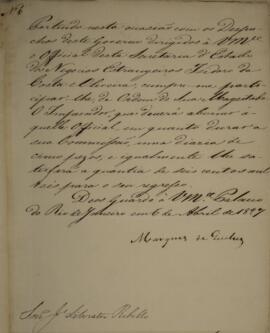 Nº 6
Partindo nesta occasião com os Despa-
chos deste Governo dirigidos à V Mce
o Official desta Secretaria d'Estado
dos Negocios Estrangeiros Isidoro da
Costa e Oliveira, cumpre me par-
ticipar lhe, de Ordem de Sua Magestade
O Imperador, que deverá abonar á-
quelle Official, em quanto durar a
sua Commissão, uma diaria de
cinco pezos, e igualmente lhe sa-
tisfará a quantia de seis centos mil
reis para o seu regresso.
Deos Guarde a V Mce Palacio
do Rio de Janeiro em 6 de Abril de 1827
Marquez de Queluz
Snr Rebello